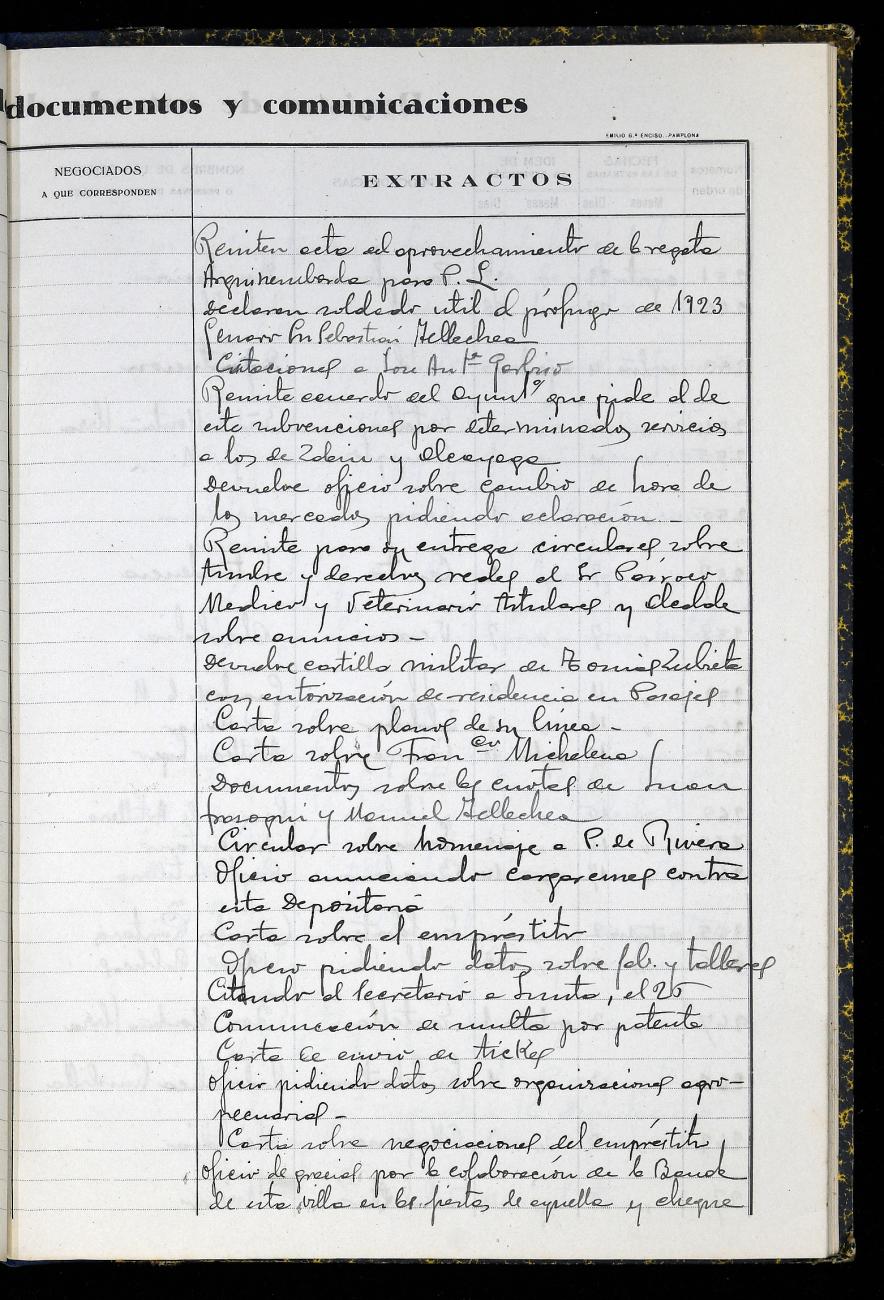 documentos y comunicaciones
EMILIO G.ª ENCISO.-PAMPLONA
NEGOCIADOS
A QUE CORRESPONDEN
EXTRACTOS
Remiten acta del aprovechamiento de la regata
para P. L.
Declaran soldado util al prófugo de 1923
Genaro Sn Sebastian Tellechea
Citaciones a Jose Antº
Remite acuerdo del Ayuntº que pide al de
este subvenciones por determinados servicios
a los de y Alcayaga
Devuelve oficio sobre cambio de hora de
los mercados pidiendo aclaración.-
Remite para su entrega circulares sobre
timbre y derechos reales al Sr Párroco
Medico y Veterinario titulares y Alcalde
sobre anuncios-
Devuelve cartilla militar de Tomas Zubieta
con autorización de residencia en Pasajes
Carta sobre planos de su linea-
Carta sobre Franco Michelena
Documentos sobre las cuotas de Juan
y Manuel Tellechea
Circular sobre homenaje a P. de Rivera
Oficio anunciando cargaremes contra
esta Depositaria
Carta sobre el empréstito
Oficio pidiendo datos sobre fab. y talleres
Citando al Secretario a Junta, el 25
Comunicación de multa por patente
Carta de envio de tickes
Oficio pidiendo datos sobre organizaciones agro-
pecuarias-
Carta sobre negociaciones del empréstito
Oficio de gracias por la colaboracion de la Banda
de esta villa en las fiestas de aquella y cheque